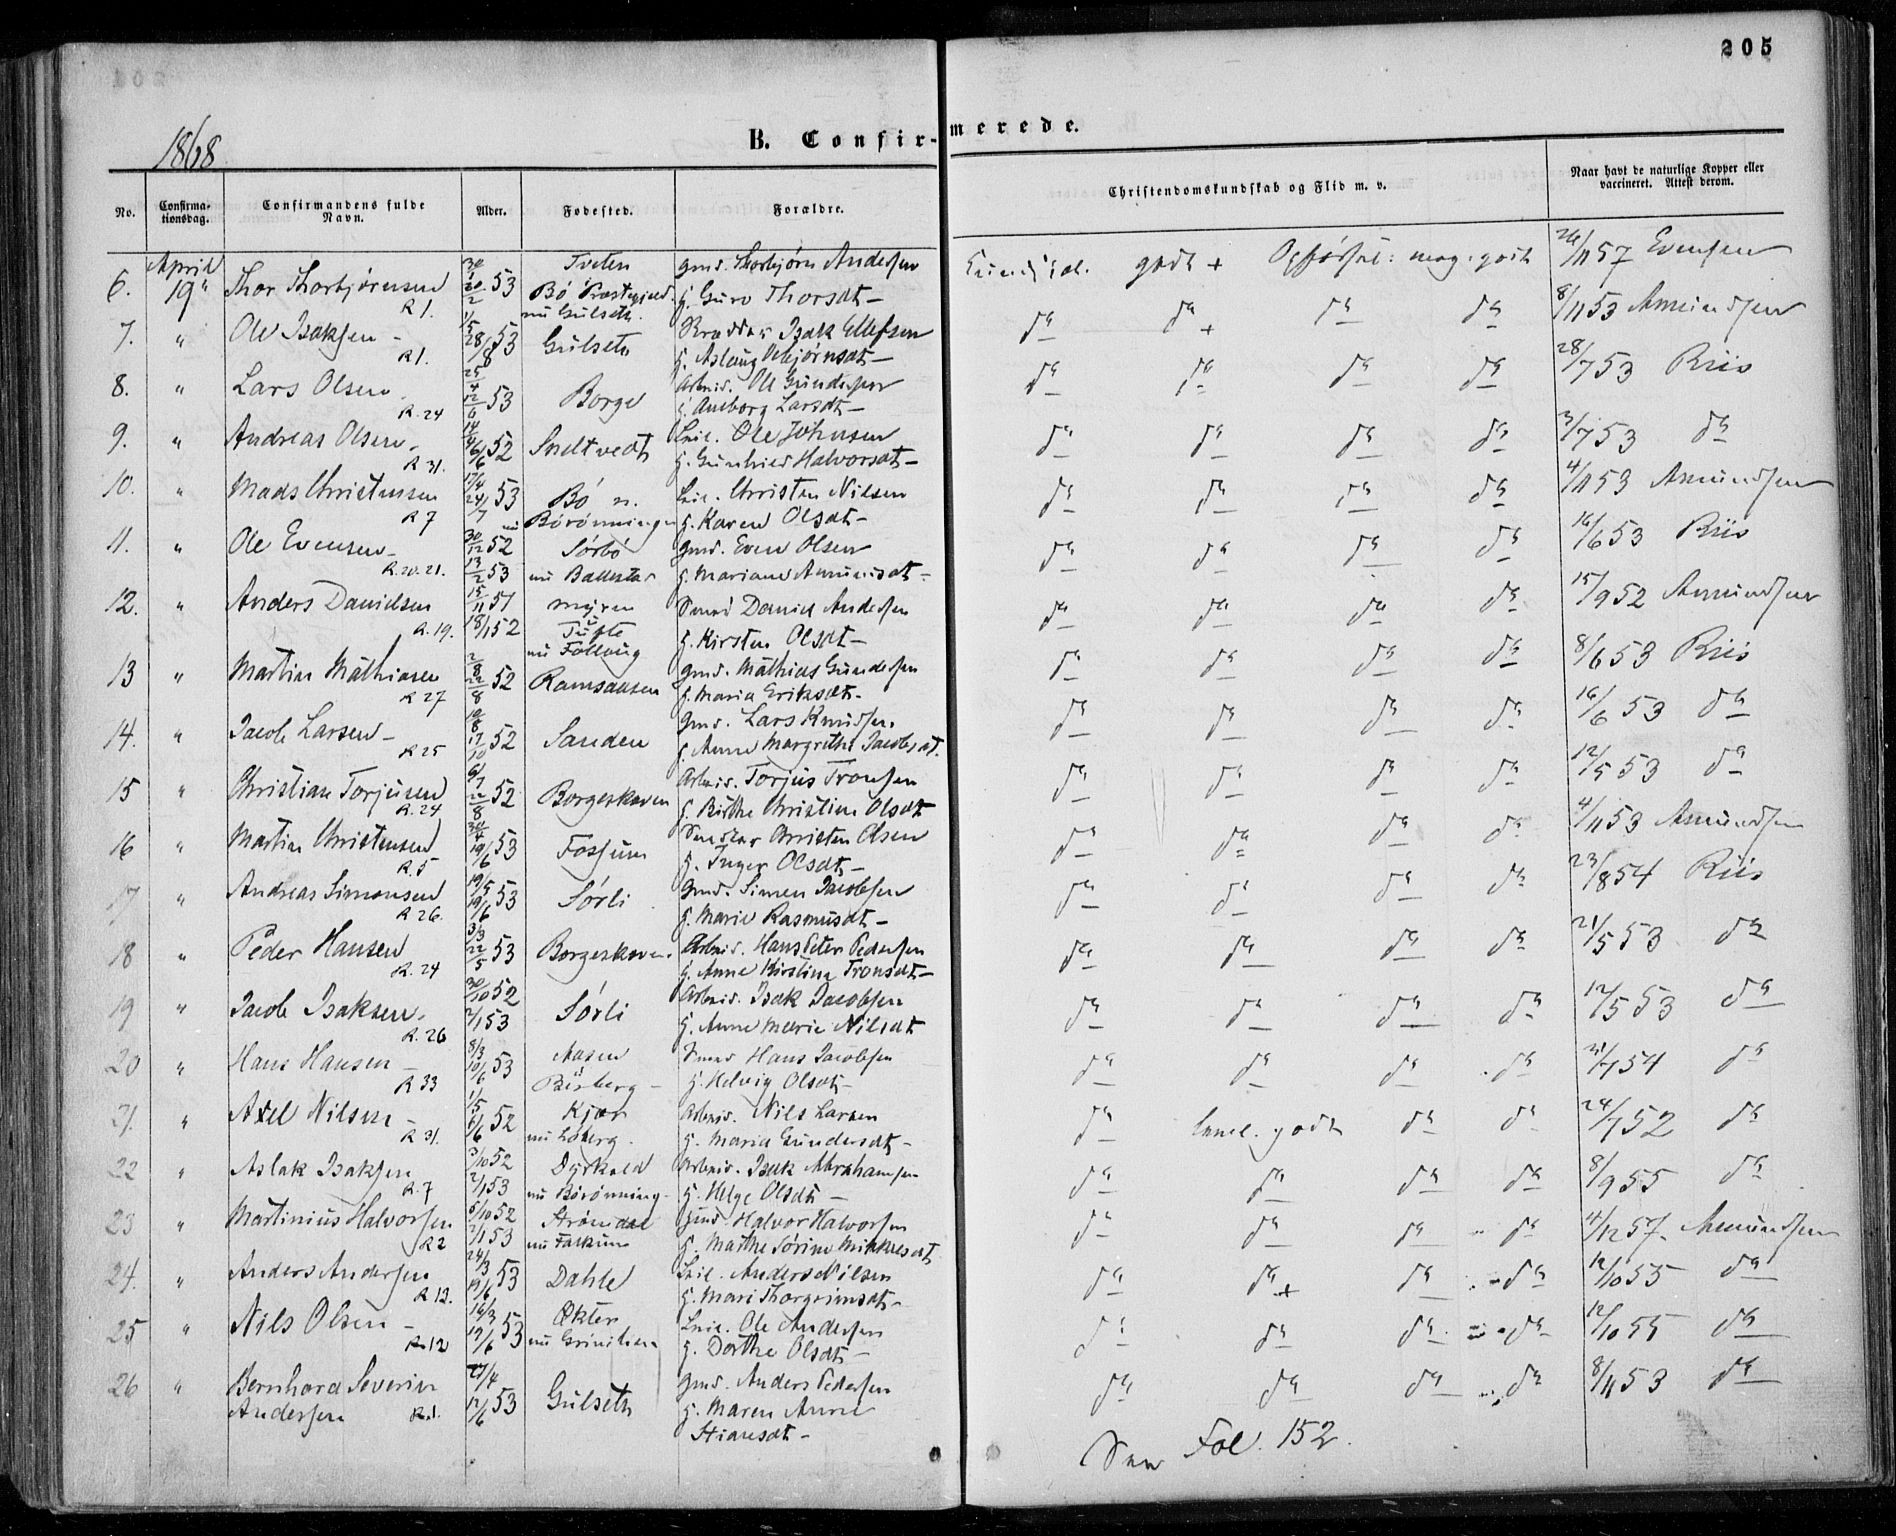 205
1868
B. Confirmerede.
No. Confirmationsdag. Confirmandens fulde Navn. Alder. Fødested. Forældre. Christendomskundskab og Flid m. v. Naar havt de naturlige Kopper eller vaccineret. Attest derom.
6. April 19 Thor Thorbjørnsen R 1. 20/2 53 Tveten Bø Præstegjeld. nu Gulseth. Gmd. Thorbjørn Andersen H. Guro Thorsdt - godt + Opførsel: meg. godt 26/11 57 Evensen
7. " Ole Isaksen - R 1. 28/8 53 Gulseth Isak Ellefsen H. Aslaug - d° d° + d° d° 8/11 53 Amundsen
8. " Lars Olsen R. 24 12/6 53 Borge Arbeid. Ole Gundersen H. Anborg Larsdt - d° d° d° d° 28/7 53 Riis
9. " Andreas Olsen - R 31. 52 Sneltvedt Ole Johnsen H. Gunhild Halvorsdt - d° d° d° d° 3/7 53 d°
10. " Mads Christensen R 7 17/4 24/7 53 Bø n. nu Børønningen Christen Nilsen H. Karen Olsdt - d° d° d° d° 4/11 53 Amundsen
11. " Ole Evensen - R. 20. 21. 30/12 52 13/2 53 Sørbø nu Ballestad Gmd. Even Olsen H. Mariane Amundsdt - d° d° d° d° 16/6 53 Riis
12. " Anders Danielsen R. 19. 15/11 51 18/1 52 Myren Tufte nu Follaug Daniel Andersen H. Kirsten Olsdt - d° d° d° d° 15/9 52 Amundsen
13 " Martin Mathiasen R 27 2/8 22/8 52 Ramsaasen Gmd. Mathias Gundersen H. Maria Eriksdt - d° d° d° d° 8/6 53 Riis
14. " Jacob Larsen - R 25 10/8 17/10 52 Sanden Gmd. Lars Knudsen H. Anne Margrethe Jacobsdt. d° d° d° d° 16/6 53 d°
15 " Christian Torjusen R. 24 22/8 52 Borgeskoven Arbeid. Torjus Tronsen H. Birthe Christine Olsdt d° d° d° d° 12/5 53 d°
16 " Martin Christensen R. 5 30/4 19/6 53 Fossum Christen Olsen H. Inger Olsdt - d° d° d° d° 4/11 53 Amundsen
17 " Andreas Simonsen R. 26. 19/5 19/6 53 Sørli Gmd. Simen Jacobsen H. Marie Rasmusdt - d° d° d° d° 23/8 54 Riis
18 " Peder Hansen R. 24 3/3 22/5 53 Borgeskoven Arbeid. Hans Peter Pedersen H. Anne Kirstine Tronsdt - d° d° d° d° 21/5 53 d°
19 " Jacob Isaksen. R. 26 30/10 52 2/1 53 Sørli Arbeid. Isak Jacobsen H. Anne Marie Nilsdt d° d° d° d° 12/5 53 d°
20 " Hans Hansen - R 33 8/3 10/6 53 Aasen Hans Jacobsen H. Helvig Olsdt - d° d° d° d° 54 d°
21. " Axel Nilsen - R 31. 1/5 6/6 52 Kjær nu Løberg. Arbeid. Nils Larsen H. Maria Gundersdt - d° godt d° d° 24/7 52 d°
22 " Aslak Isaksen R. 7 3/10 52 2/1 53 nu Børønning - Arbeid. Isak Abrahamsen H. Helge Olsdt - d° d° d° d° 8/9 55 d°
23 " Martinius Halvorsen R 2 5/10 52 2/1 53 Strømdal nu Falkum Gmd. Halvor Halvorsen H. Marthe Sørine Mikkelsdt d° d° d° d° 4/12 57. Amundsen
24. " Anders Andersen R 12. 24/3 19/6 53 Dahle Anders Nilsen H. Mari Thorgrimsdt - d° d° + d° d° 12/10 55 d°
25 " Nils Olsen - R. 12 16/3 19/6 53 Økter nu Ole Andersen H. Dorthe Olsdt - d° d° d° d° 12/10 55 d°
26 " Bernhard Severin Andersen R. 1. 27/4 12/6 53 Gulseth Gmd. Anders Pedersen H. Maren Anne Stiansdt - d° d° d° d° 8/11 53 d°
See Fol. 152.